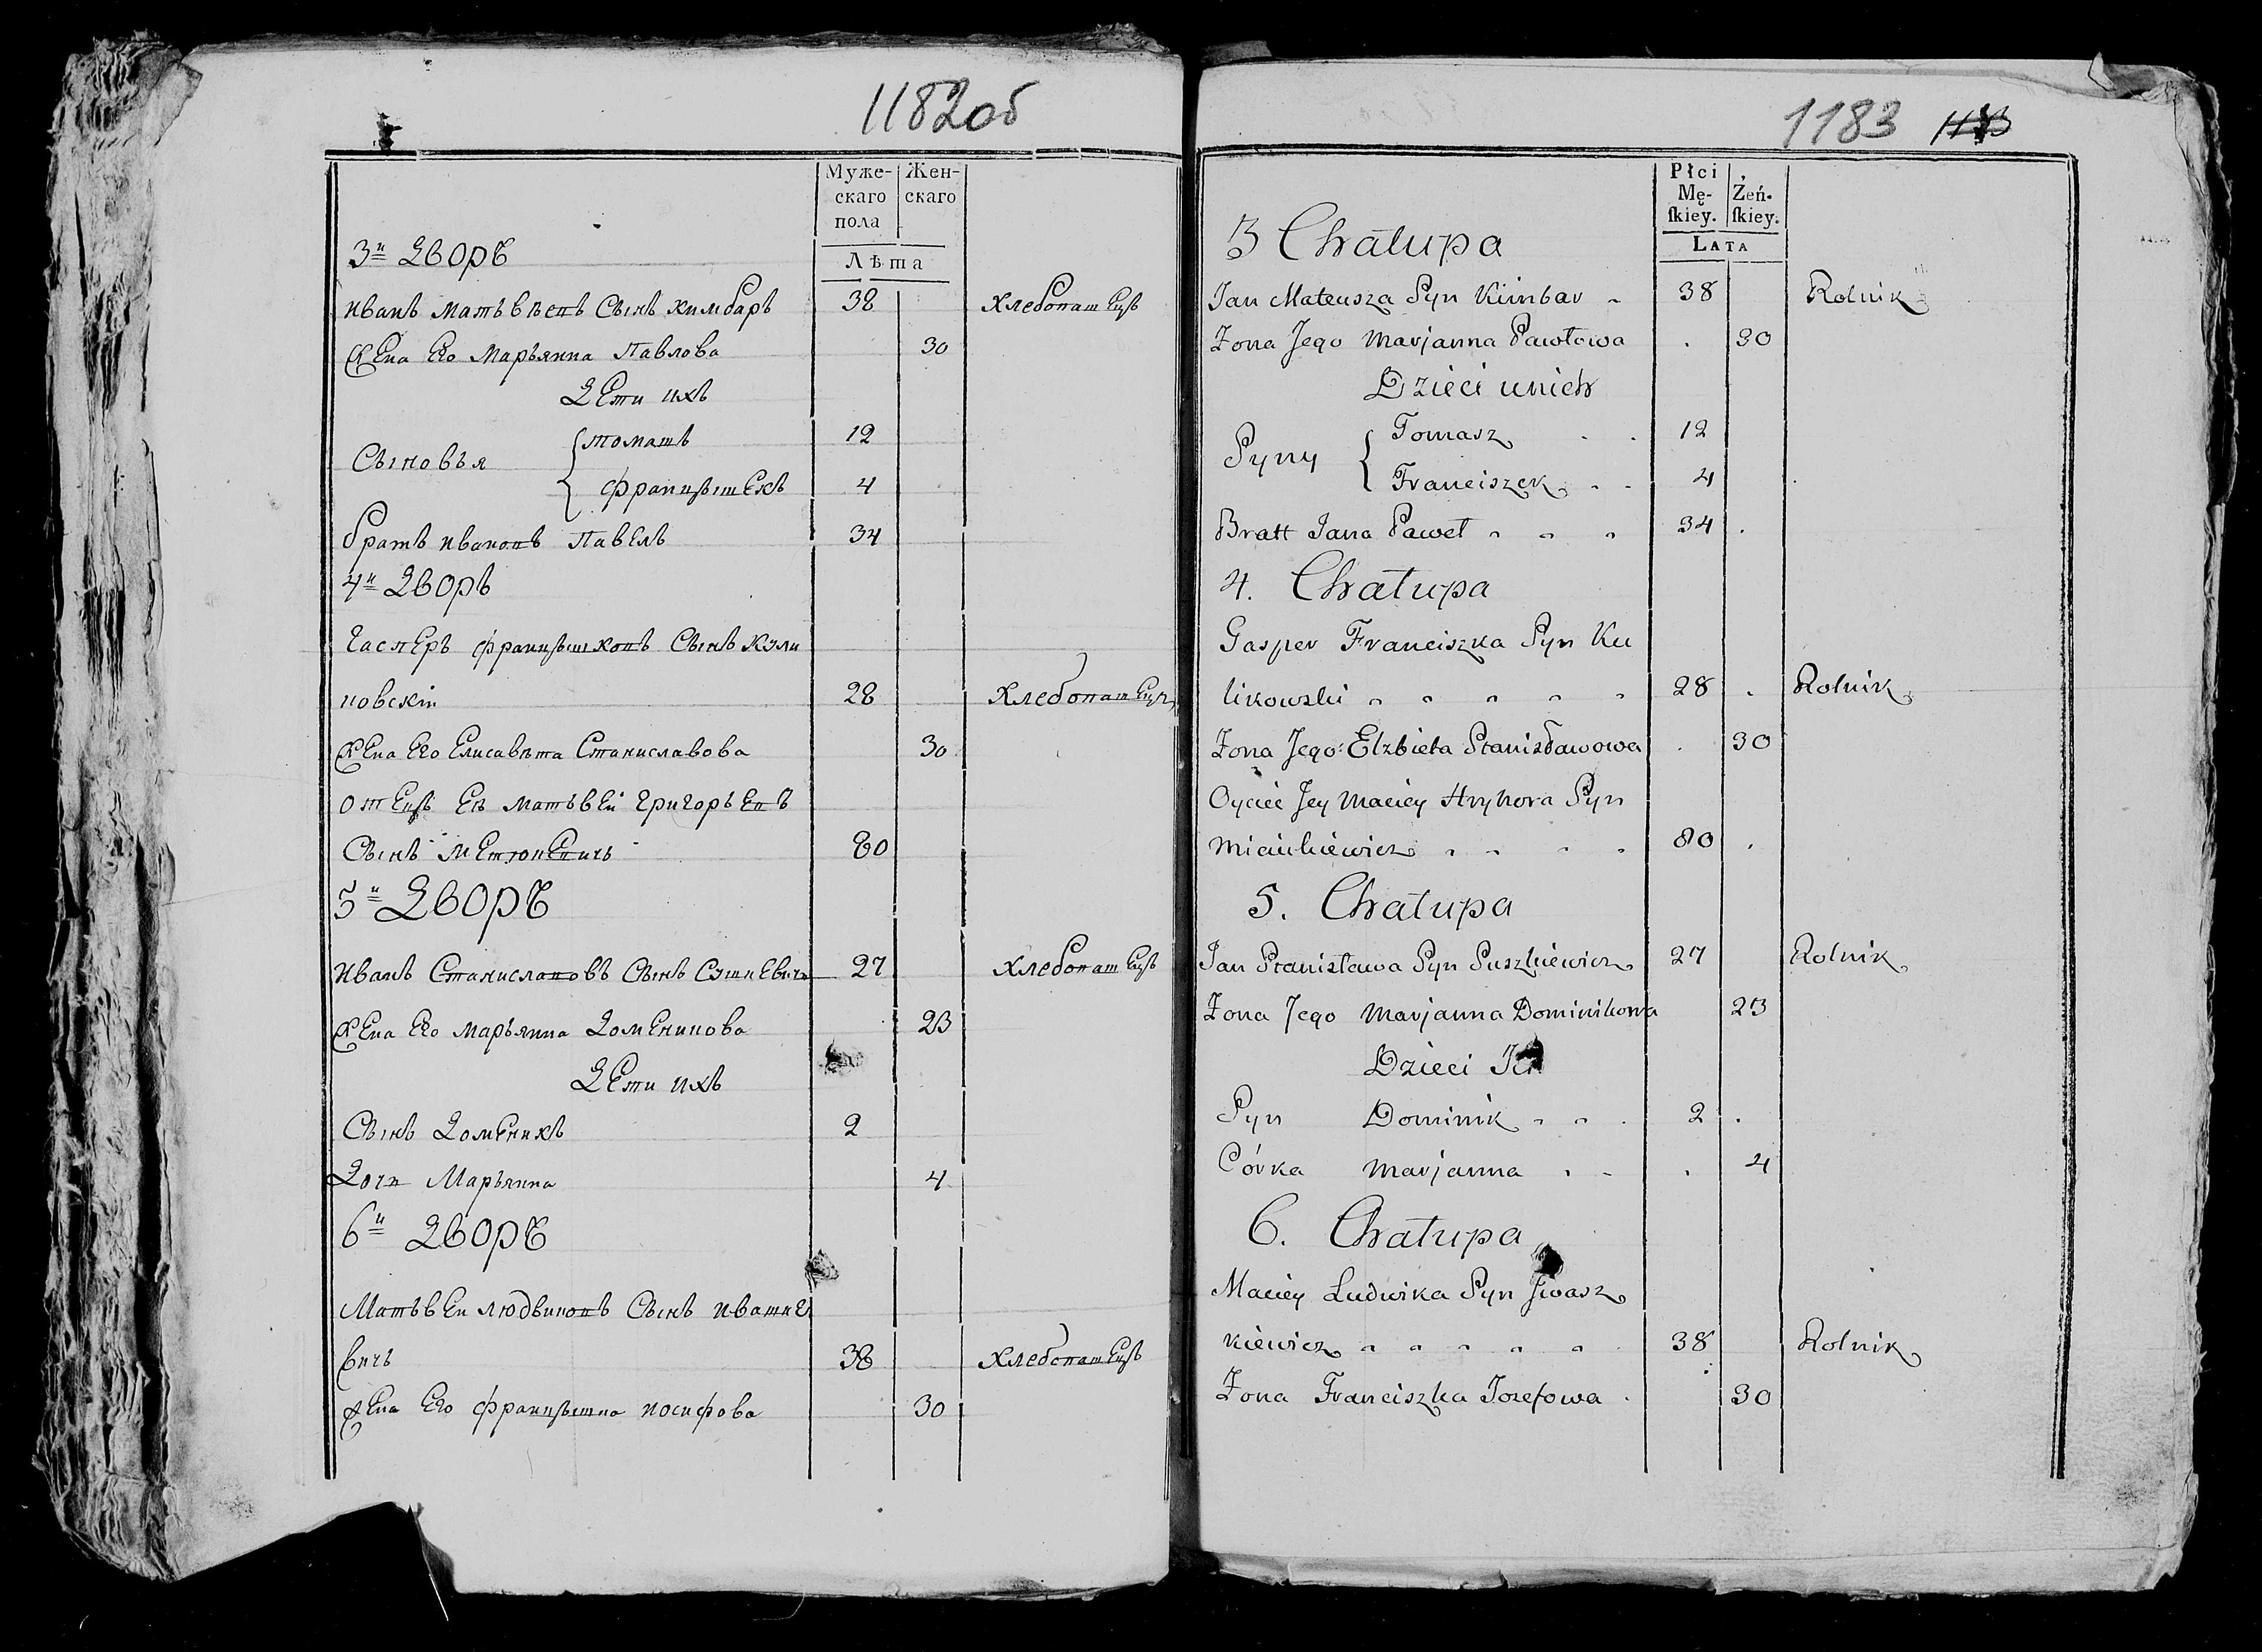 1182об
Муже-
скаго
пола
Жен-
скаго
Лѣта
3й Дворъ
Иванъ Матьвѣевъ Сынъ Кимбаръ 38 Хлебопашецъ
Жена Его Марьянна Павлова 30
Дети ихъ
Сыновья Томашъ 12
Францышекъ 4
братъ Ивановъ Павелъ 34
4й Дворъ
Гасперъ Францышковъ Сынъ Кули
новскій 28 Хлебопашецъ
Жена Его Елисавѣта Станиславова 30
отецъ Еѣ Матьвей Григорьевъ
Сынъ 80
5й Дворъ
Иванъ Станиславовъ Сынъ Сушкевичъ 27 Хлебопашецъ
Жена Его Марьянна Доменикова 23
Дети ихъ
Сынъ Доменикъ 2
Дочь Марьянна 4
6й Дворъ
Матьвей Людвиковъ Сынъ Ивашке
вичъ 38 Хлебопашецъ
Жена Его Францышка Иосифова 30
1183 1183
Płci
Mę-
ſkiey.
Żeń-
ſkiey.
Lata
3 Chałupa
Jan Mateusza Syn Kimbar 38 Rolnik
Żona Jego Marjanna Pawłowa 30
Dzieci unich
Syny Tomasz 12
Franciszek 4
Bratt Jana Paweł 34
4. Chałupa
Gasper Franciszka Syn Ku
likowski 28 Rolnik
Żona Jego: Elzbieta Stanisławowa 30
Oyciec Jey Maciey Hryhora Syn
80
5. Chałupa
Jan Stanisława Syn Suszkiewicz 27 Rolnik
Żona Jego Marjanna Dominikowa 23
Dzieci Ich
Syn Dominik 2
Córka Marjanna 4
6. Chałupa
Maciey Ludwika Syn Jwasz
kiewicz 38 Rolnik
Żona Franciszka Jozefowa 30